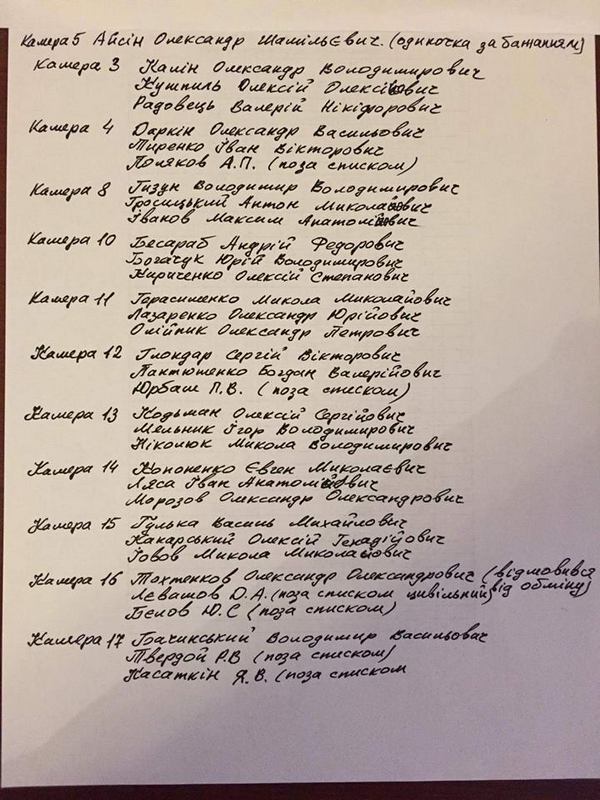 Камера 5 Айсін Олександр Шамільєвич. (одиночка за бажанням)
Камера 3 Калін Олександр Володимирович
Кушпиль Олексій Олексійович
Радовець Валерій Нікіфорович
Камера 4 Даркін Олександр Васильович
Тиренко Іван Вікторович
Поляков А.П. (поза списком)
Камера 8 Гизун Володимир Володимирович
Гросицький Антон Миколайович
Іванов Максим Анатолійович
Камера 10 Бесараб Андрій Федорович
Богачук Юрій Володимирович
Кириченко Олексій Степанович
Камера 11 Герасименко Микола Миколайович
Лазаренко Олександр Юрійович
Олійник Олександр Петрович
Камера 12 Глондар Сергій Вікторович
Пантюшенко Богдан Валерійович
Юрбаш П.В. (поза списком)
Камера 13 Кодьман Олексій Сергійович
Мельник Ігор Володимирович
Ніколюк Микола Володимирович
Камера 14 Кононенко Євген Миколаєвич
Ляса Іван Анатолійович
Морозов Олександр Олександрович
Камера 15 Гулька Василь Михайлович
Канарський Олексій Генадійович
Іовов Микола Миколайович
Камера 16 Тохтенков Олександр Олександрович (відмовився від обміну)
Лєвашов О.А. (поза списком цивільний)
Бєлов Ю.С (поза списком)
Камера 17 Брачинський Володимир Васильович
Твердой Р.В (поза списком)
Касаткін Я.В. (поза списком